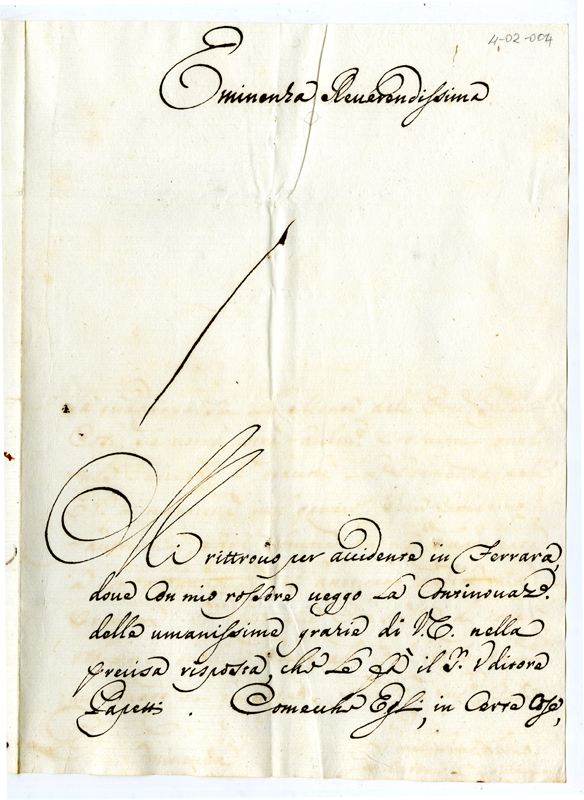 4-02-004
Eminenza Reuerendissima
Mi rittrouo per accidente in Ferrara,
doue con mio rossore ueggo la Continouaz.e
delle umanissime grazie di V.E. nella
precisa risposta, che Le fà il S.r Vditore
Papetti. Comecche Egli, in certe Cose,